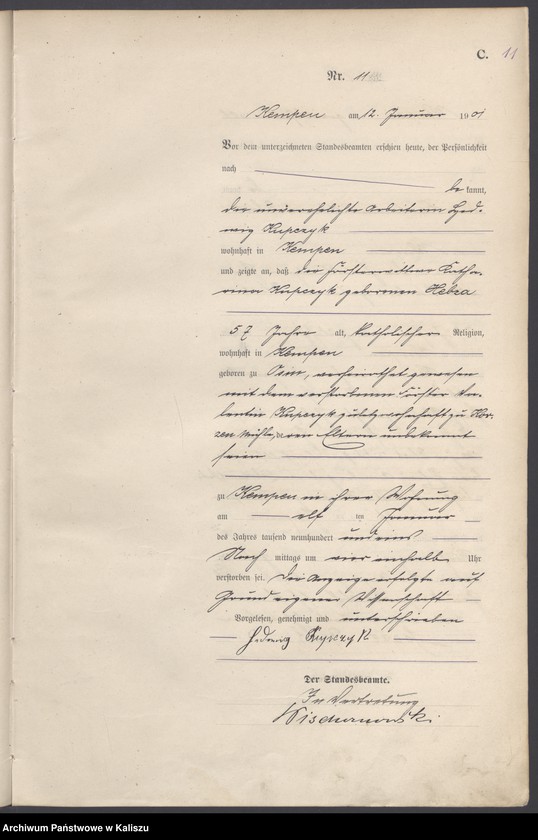 C. 11
Nr. 11
Kempen am 12. Januar 1901
Vor dem unterzeichneten Standesbeamten erschien heute, der Persönlichkeit
nach
be kannt,
die unverehelichte Arbeiterin Hed-
wig Kupczyk
wohnhaft in Kempen
und zeigte an, daß die Försterwittwe Katha-
rina Kupczyk geborenen Hebza
57 Jahre alt, katholischer Religion,
wohnhaft in Kempen
geboren zu Osin, verheirathet gewesen
mit dem verstorbenen Förster Va-
lentin Kupczyk zuletzt wohnhaft zu
Mühle, deren Eltern unbekannt
seien
zu Kempen in ihrer Wohnung
am elf ten Januar
des Jahres tausend neunhundert und eins
Nach mittags um vier einhalb Uhr
verstorben sei. Die Anzeige erfolgte auf
Grund eigener Wissenschaft
Vorgelesen, genehmigt und unterschrieben
Hedwig Kupczyk
Der Standesbeamte.
In Vertretung
Archiwum Państwowe w Kaliszu